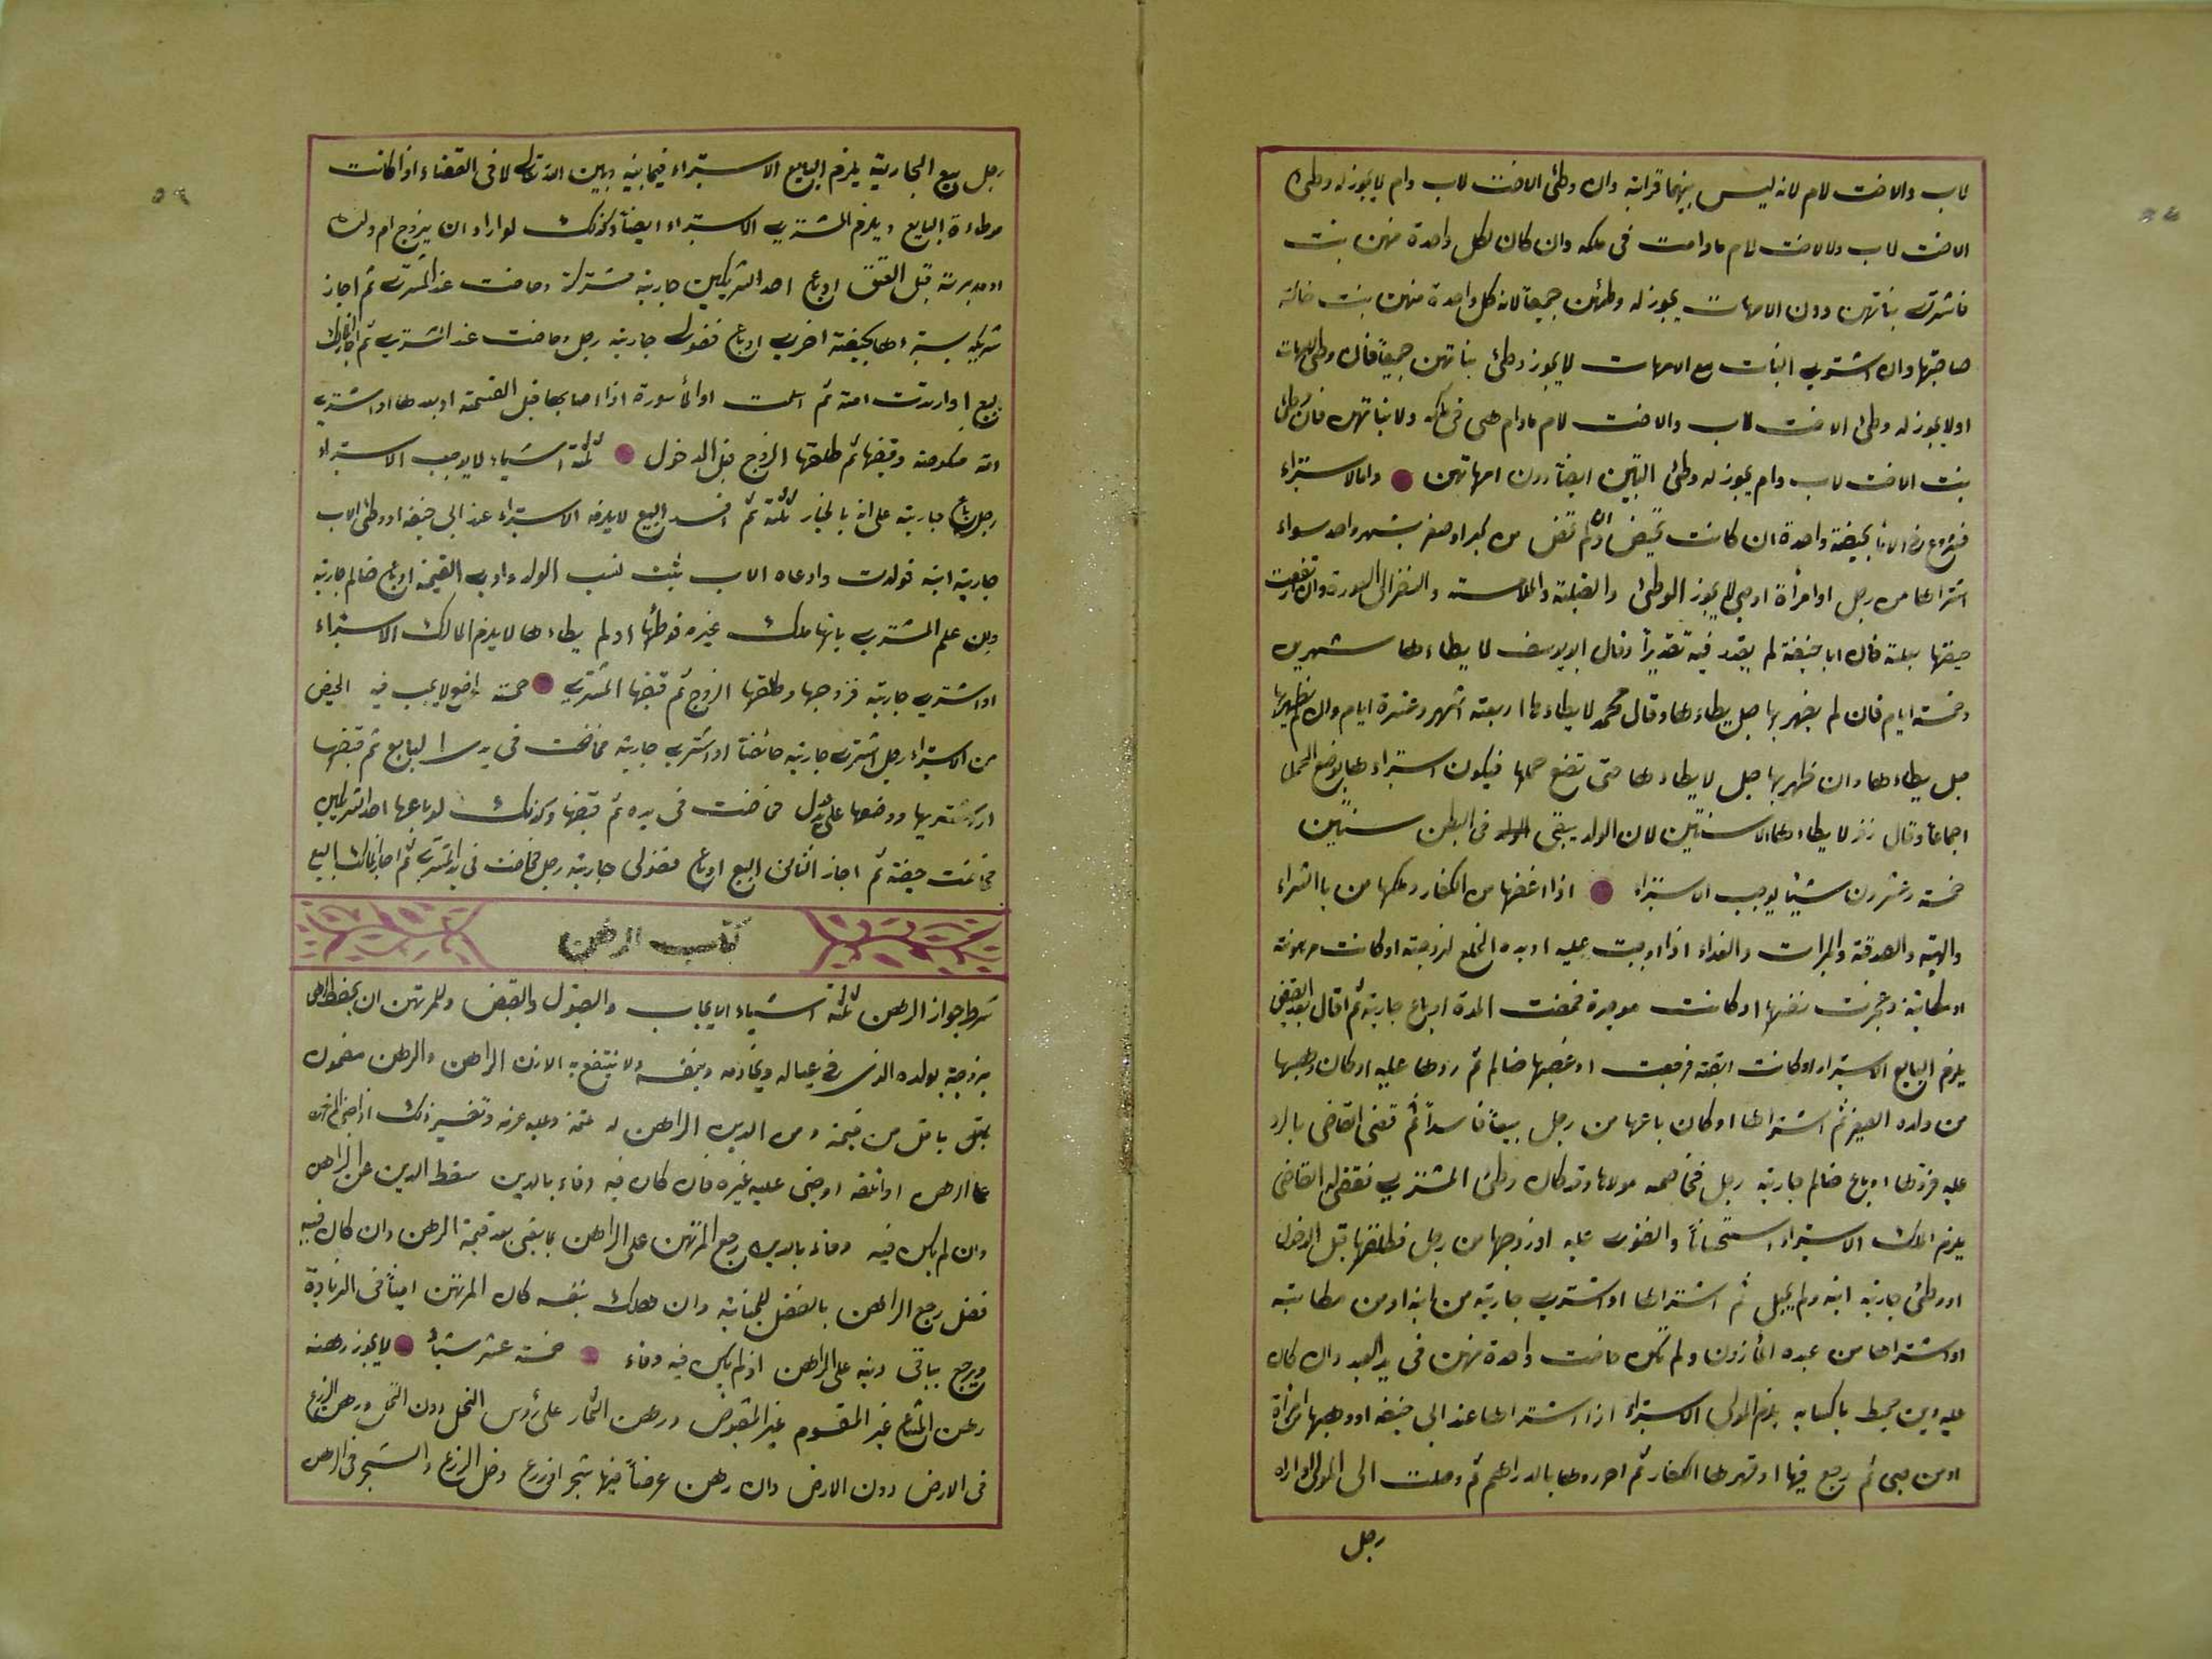 لاب والاخت لام لانه ليس بينهما قرابة وان وطئ الاخت لاب وام لا يجوز له وطئ
الاخت لاب ولا لاخت لام مادامت فى ملكه وان كان لكل واحدة منهن بنت
فاشترى بناتهن دون الامهات يجوز له وطئهن جميعا لان كل واحدة منهن بنت خالة
صاحبتها وان اشترى البنات مع الامهات لا يجوز وطئ بناتهن جميعا فان وطئ الامهات
اولا يجوز له وطئ الاخت لاب والاخت لام مادام هى فى ملكه ولا بناتهن فان وطئ
بنت الاخت لاب وام يجوز له وطئ البنتين ايضا دون امهاتهن واما الاستبراء
بحيضة واحدة ان كانت تحيض وان لم تحض من كبر او صغر بشهر واحد سواء
اشتراها من رجل او امرأة او صبى لا يجوز الوطئ والقبلة والملامسة والنظر الى العورة وان ارتفعت
حيضها بعلة فان ابا حنيفة لم يقدر فيه تقديرا وقال ابو يوسف لا يطاءها شهرين
وخمسة ايام فان لم يظهر بها حبل يطاءها وقال محمد لا يطاءها اربعة اشهر وعشرة ايام وان لم يظهر بها
حبل يطاءها وان ظهر بها حبل لا يطاءها حتى تضع حملها فيكون استبراءها بوضع الحمل
اجماعا وقال زفر لا يطاءها الا سنتين لان الولد يبقى فى البطن سنتين
خمسة وعشرون شيئا يوجب الاستبراء اذا اغنمها من الكفار وملكها من بالشراء
والهبة والصدقة والميراث والفداء اذا وجبت عليه او بدل الخلع لزوجته او كانت مرهونة
او مكاتبة وعجزت نفسها او كانت موجرة فمضت المدة او باع جارية ثم اقال بعد القبض
يلزم البايع الاستبراء او كانت ابقة فرجعت او غصبها ظالم ثم ردها عليه او كان وهبها
من ولده الصغير ثم اشتراها او كان باعها من رجل بيعا فاسدا ثم قضى القاضى بالرد
عليه فردها او باع ظالم جارية رجل فخاصمه مولاها وقد كان وطئ المشترى فقضى له القاضى
يلزم المالك الاستبراء استحسانا والفتوى عليه او زوجها من رجل فطلقها قبل الدخول
او وطئ جارية ابنه ولم يحبل ثم اشتراها او اشترى جارية من ابنه او من مكاتبه
او اشتراها من عبده المأذون ولم تكن حاضت واحدة منهن فى يد العبد وان كان
عليه دين محيط باكسابه يلزم المولى الاستبراء اذا اشتراها عند ابى حنيفة او وهبها امرأة
او من صبى ثم رجع فيها او قهرها الكفار ثم احرزوها بالدراهم ثم وصلت الى المولى او اراد
رجل
رجل بيع الجارية يلزم البايع الاستبراء فيما بينه وبين الله تعالى لا فى القضاء اذا كانت
موطاءة البايع ويلزم المشترى الاستبراء ايضا وكذلك لو اراد ان يزوج ام ولده
او مدبرته قبل العتق او باع احد الشريكين جارية مشتركة وحاضت عند المشترى ثم اجاز
شريكه يستبراءها بحيضة اخرى او باع فضولى جارية رجل وحاضت عند المشترى ثم اجاز المالك
بيع او ارتدت امته ثم اسلمت او المأسورة اذا اصابها قبل القسمة او بعدها او اشترى
امة منكوحة وقبضها ثم طلقها الزوج قبل الدخول ثلثة اشياء لا يوجب الاستبراء
رجل باع جارية على انه بالخيار ثلثة ثم افسد البيع لا يلزمه الاستبراء عند ابى حنيفة او وطئ الاب
جارية ابنه فولدت وادعاه الاب يثبت نسب الولد وادى القيمة او باع ظالم جارية
وان علم المشترى بانها ملك غيره فوطئها او لم يطاءها لا يلزم المالك الاستبراء
او اشترى جارية فزوجها وطلقها الزوج ثم قبضها المشترى خمسة مواضع لا يجب فيه الحيض
من الاستبراء رجل اشترى جارية حائضا او اشترى جارية فحاضت فى يد البايع ثم قبضها
او يشتريها ووضعها على يد عدل فحاضت فى يده ثم قبضها وكذلك لو باعها احد الشريكين
فحاضت حيضة ثم اجاز الثانى البيع او باع فضولى جارية رجل فحاضت فى يد المشترى ثم اجاز المالك البيع
كتاب الرهن
شرط جواز الرهن ثلثة اشياء الايجاب والقبول والقبض وللمرتهن ان يحفظ الرهن
بزوجته وولده الذى فى عياله وخادمه وبنفسه ولا ينتفع به الا باذن الراهن والرهن مضمون
باقل من قيمته ومن الدين الراهن له غنمه وعليه غرمه وتفسير ذلك اذا جنى المرتهن
على الرهن او اتلفه او جنى عليه غيره فان كان فيه وفاء بالدين سقط الدين عن الراهن
وان لم يكن فيه وفاء بالدين رجع المرتهن على الراهن بما بقى بعد قيمة الرهن وان كان فيه
فضل رجع الراهن بالفضل للجناية وان هلك بنفسه كان المرتهن امينا فى الزيادة
ويرجع بباقى دينه على الراهن اذ لم يكن فيه وفاء خمسة عشر شيئا لا يجوز رهنه
رهن المشاع غير المقسوم غير المقبوض ورهن الثمار على رؤس النخل دون النخل ورهن الزرع
فى الارض دون الارض وان رهن عرضا فيها شجر او زرع دخل الزرع والشجر فى الرهن